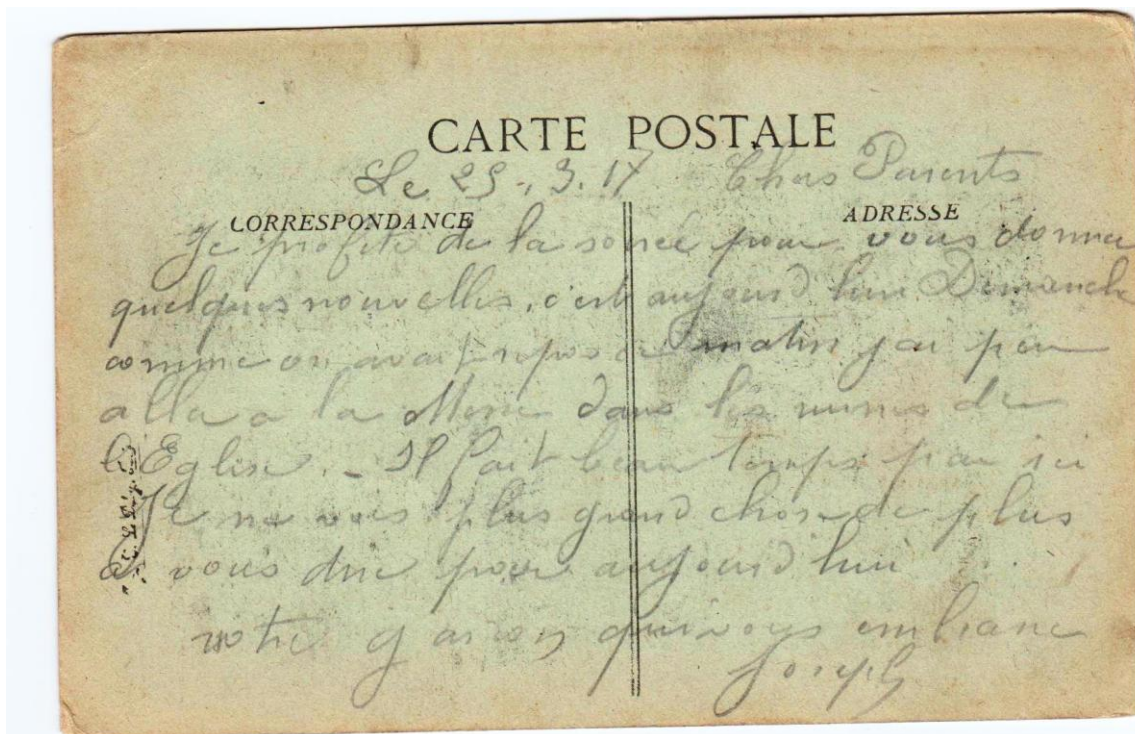 CARTE POSTALE
Le 25-.3.17 Chers Parents
CORRESPONDANCE
ADRESSE
Je profite de la soirée pour vous donner
quelques nouvelles, c'est aujourd hui Dimanche
comme on avait repos ce matin j'ai pu
alla a la Messe dans les ruines de
l'Eglise. - Il fait beau temps par ici
Je ne vois plus grand chose de plus
a vous dire pour aujourd hui
votre garçon qui vous embrasse
Joseph